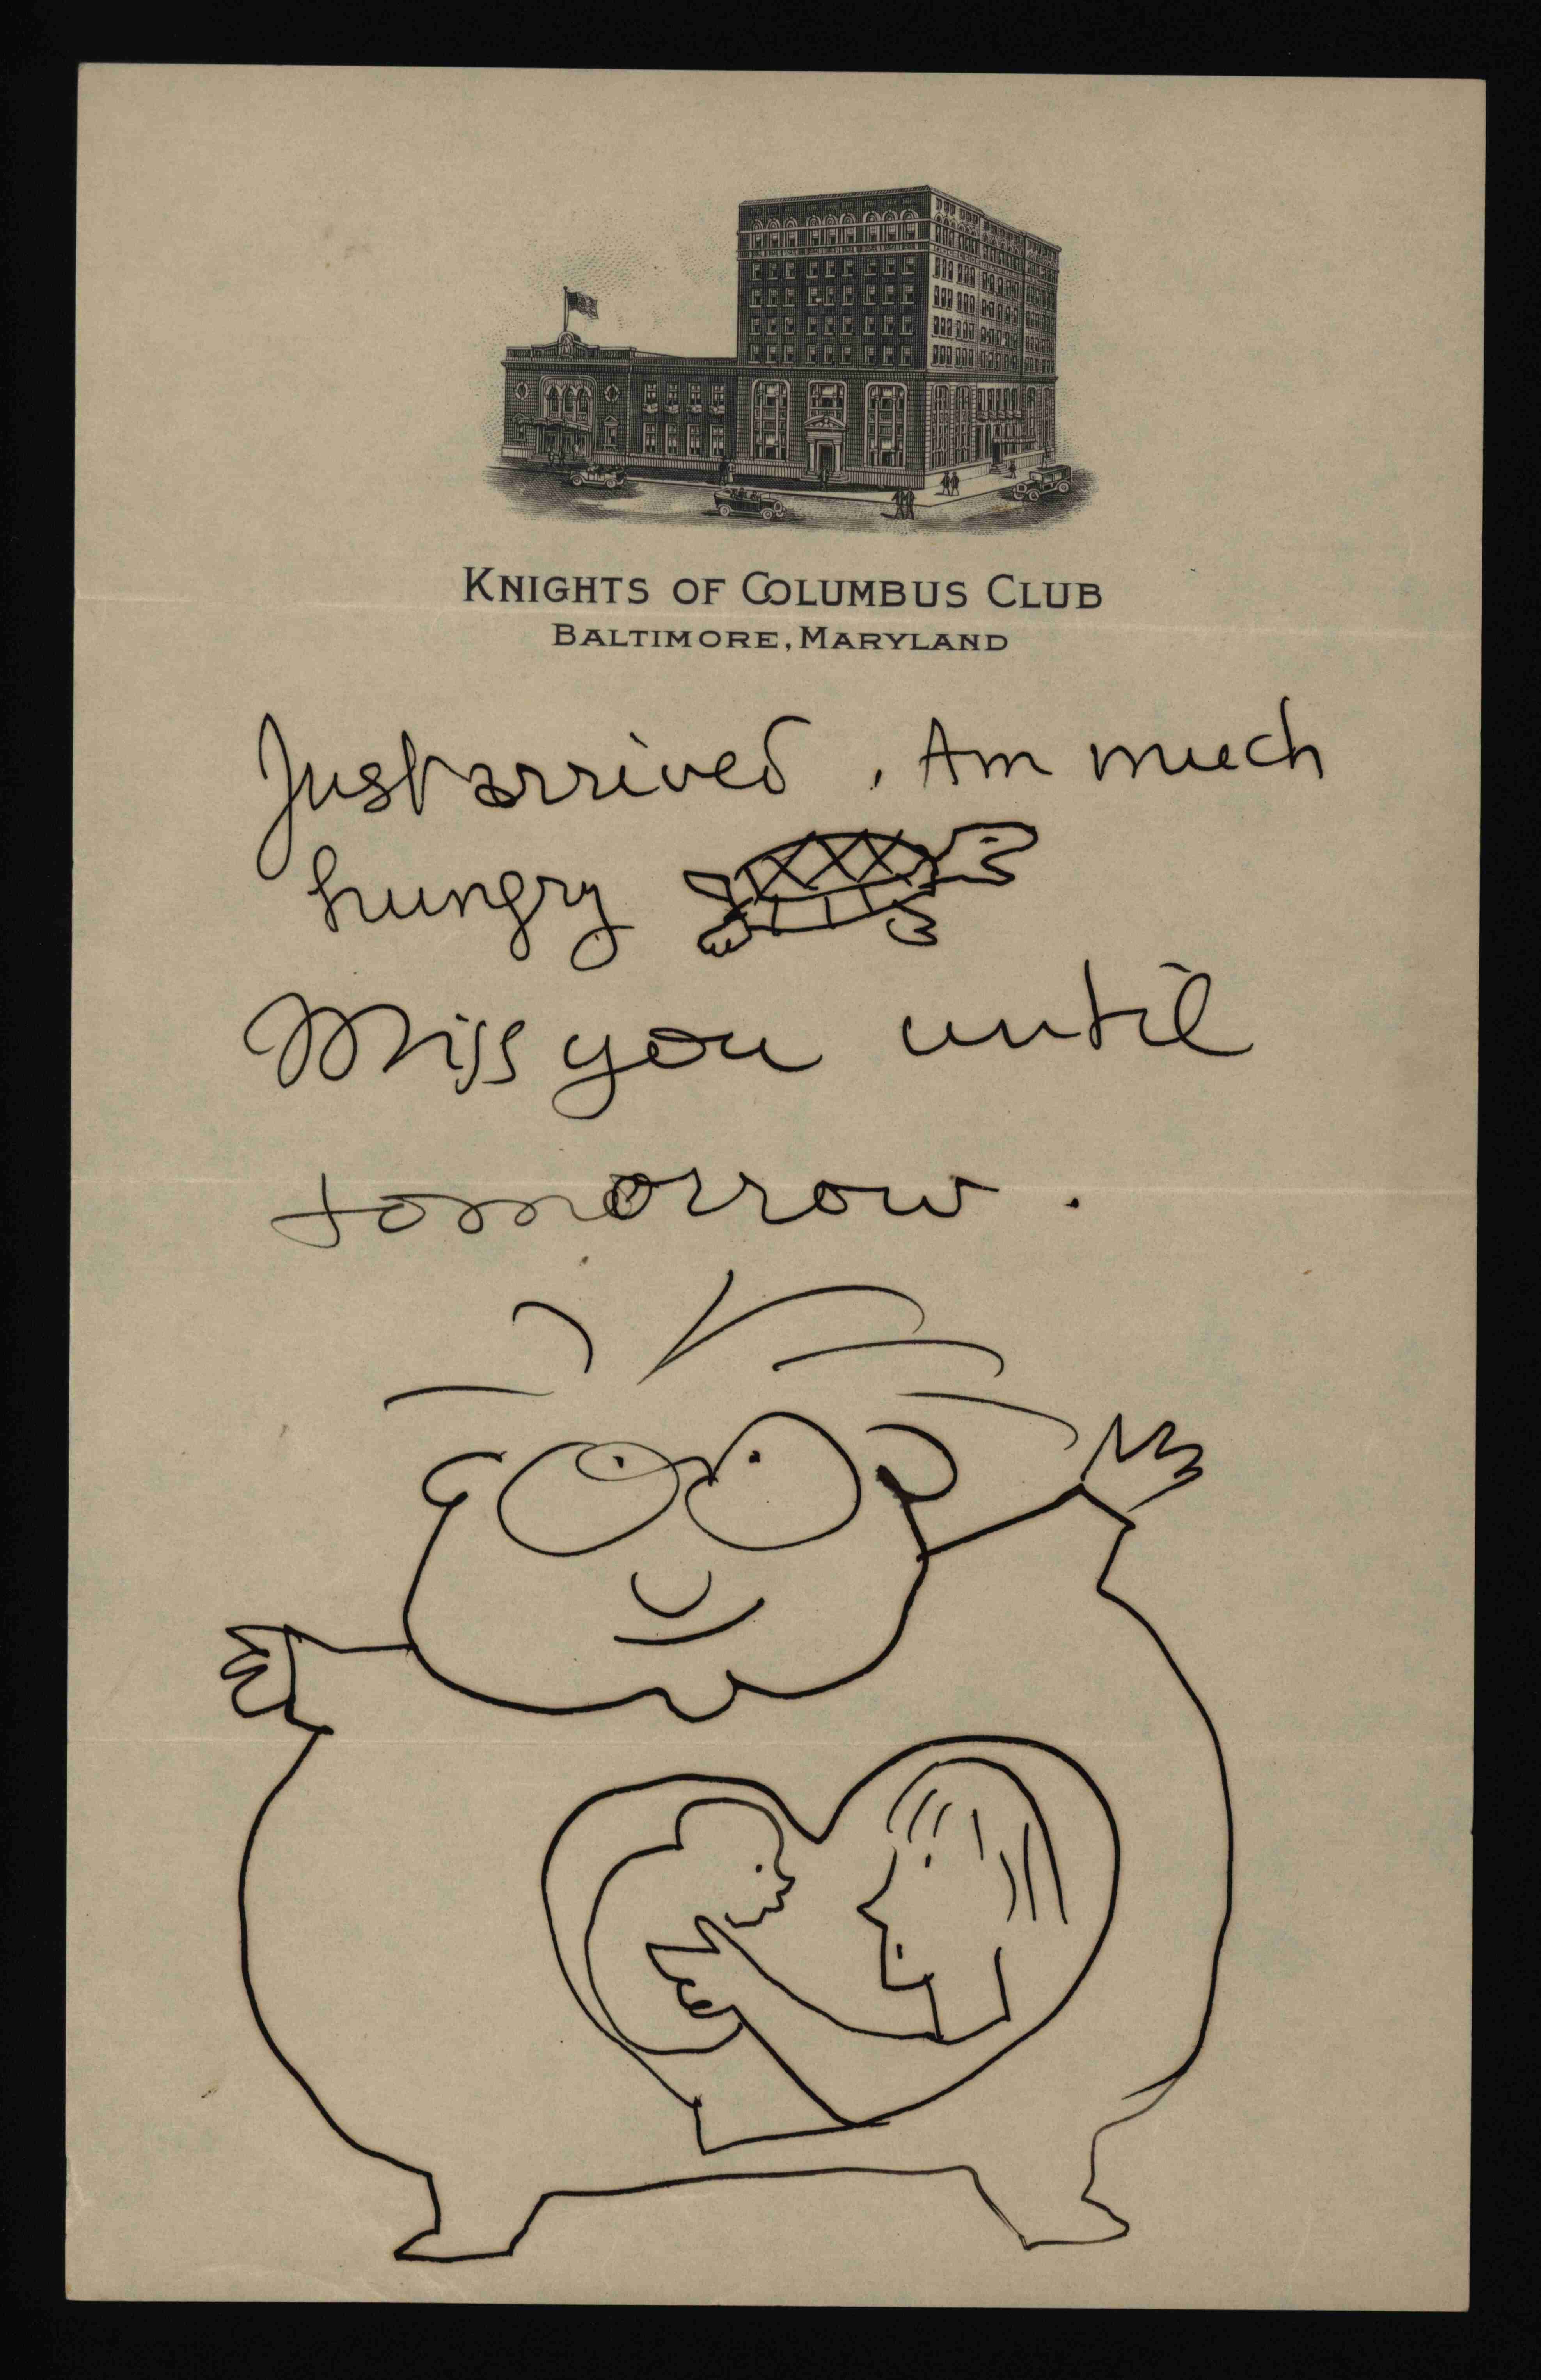 KNIGHTS OF COLUMBUS CLUB
BALTIMORE, MARYLAND
Just arrived. Am much
hungry
Miss you until
tomorrow.